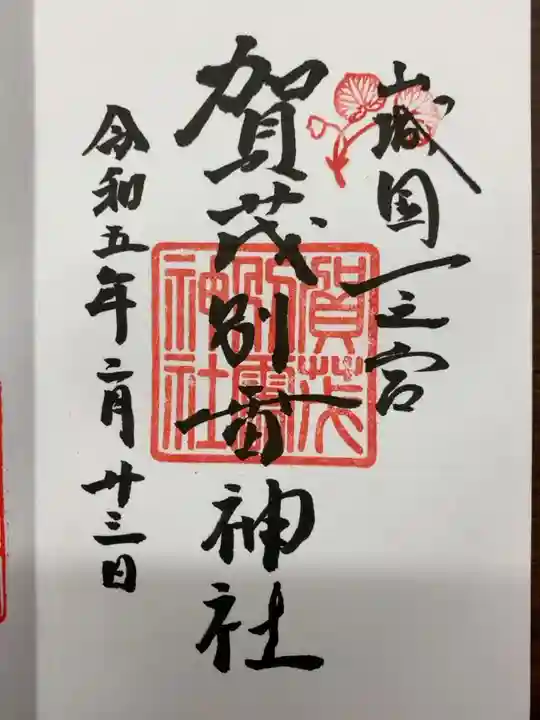 山城国一之宮
賀茂別雷神社
令和五年二月廿三日
賀茂
別雷
神社